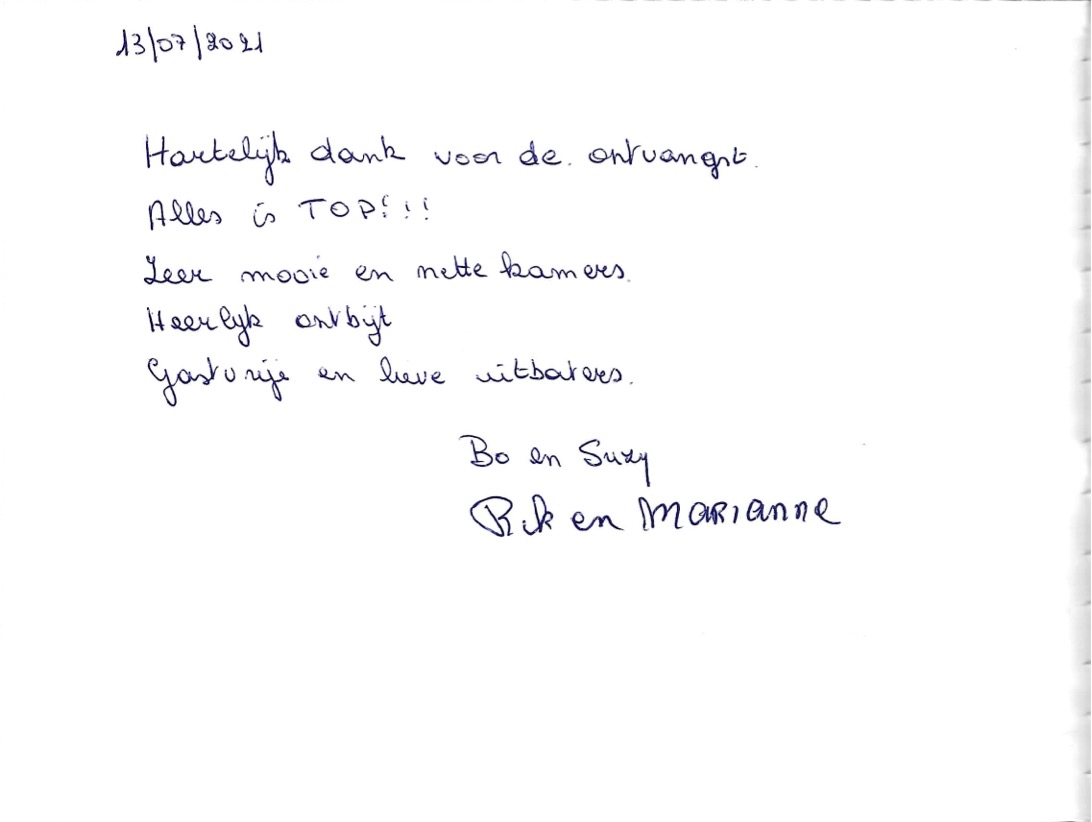 13/07/2021
Hartelijk dank voor de ontvangst.
Alles is TOP!!!
Zeer mooie en nette kamers.
Heerlijk ontbijt
Gastvrije en lieve uitbaters.
Bo en Suzy
Rik en Marianne